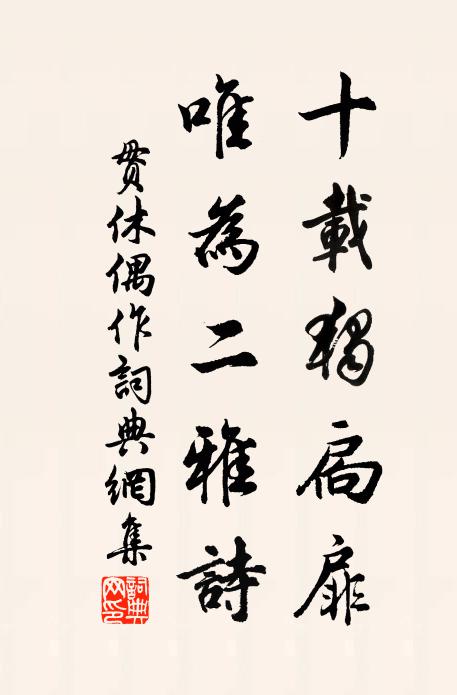 十載獨扃扉
唯為二雅詩
貫休偶作詞典網集
詞典網印